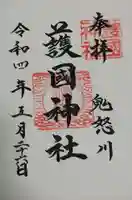 奉拝
鬼怒川
護國神社
令和四年五月二十六日